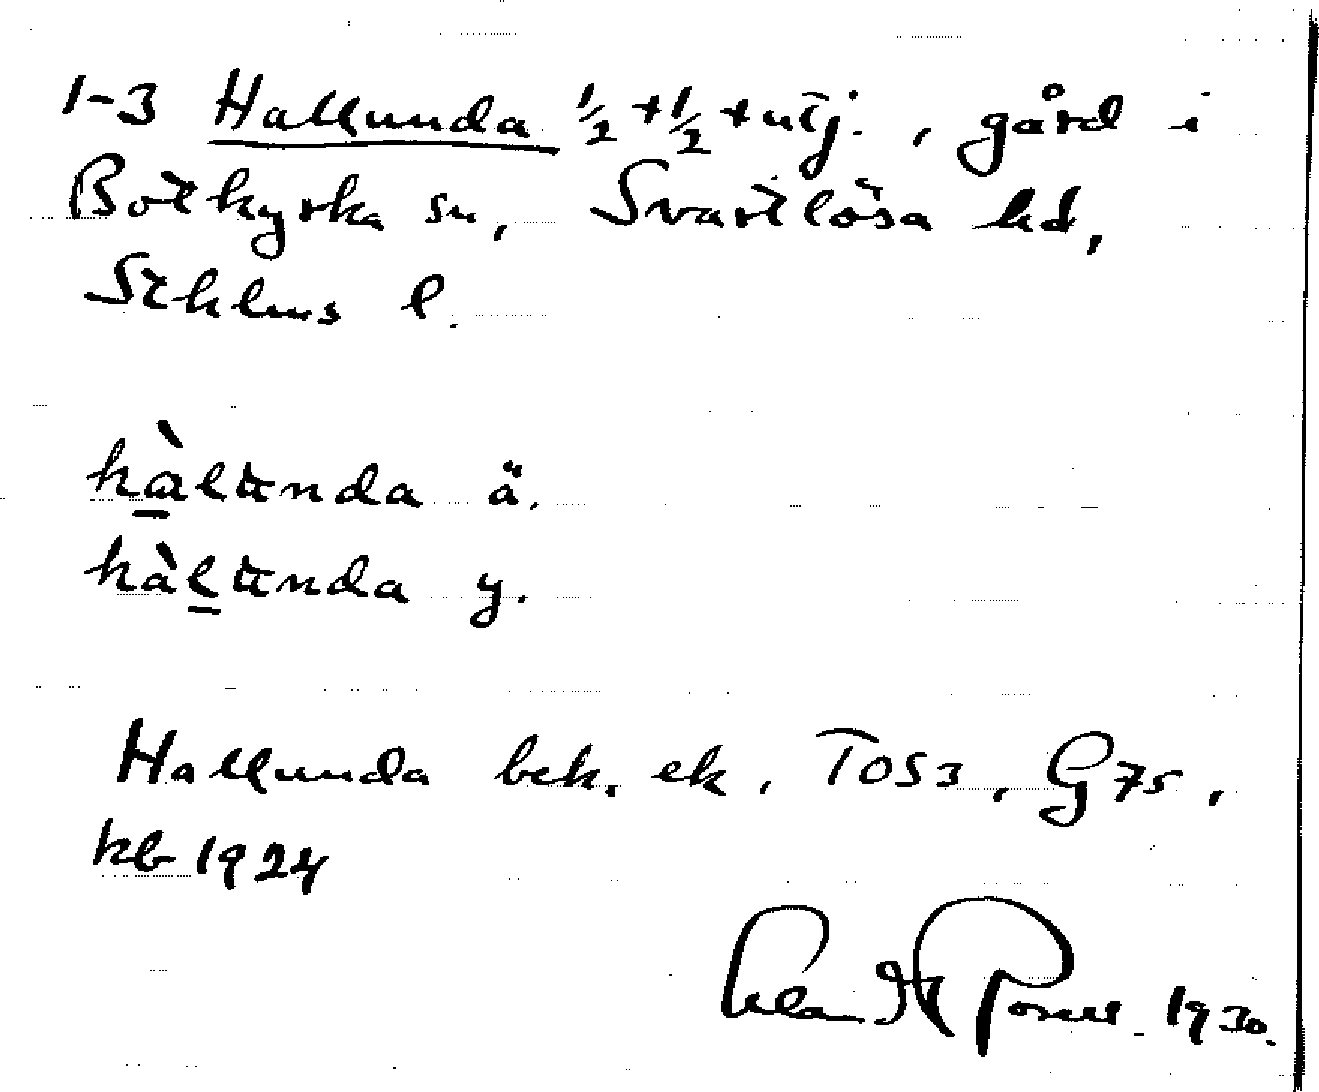 1-3 Hallunda ½ + ½ + utj., gård i
Botkyrka sn, Svartlösa hd,
Sthlms l.
hàlunda ä.
hàlunda y.
Hallunda bek. ek, T053, G75,
kb 1924
1930.